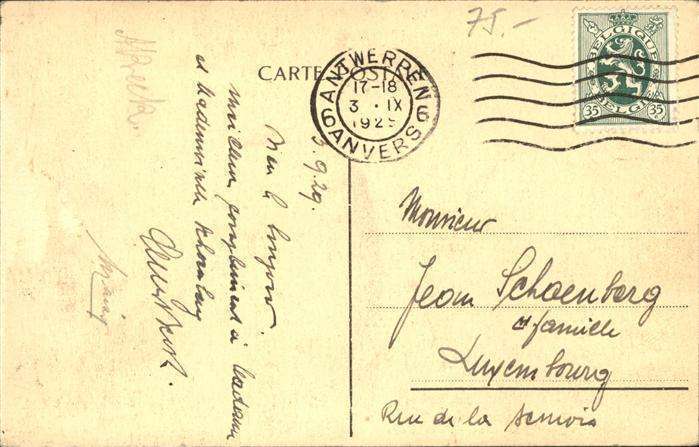 75.-
CARTE POSTALE
ANTWERPEN
17-18
3 . IX
1929
6 6
ANVERS
BELGIQUE
BELGIË
35 35
3.9.29.
Bien le bonjour.
Meilleurs compliments à Madame
et Mademoiselle Schoenberg
Monsieur
Jean Schoenberg
et famille
Luxembourg
Rue de la Semois